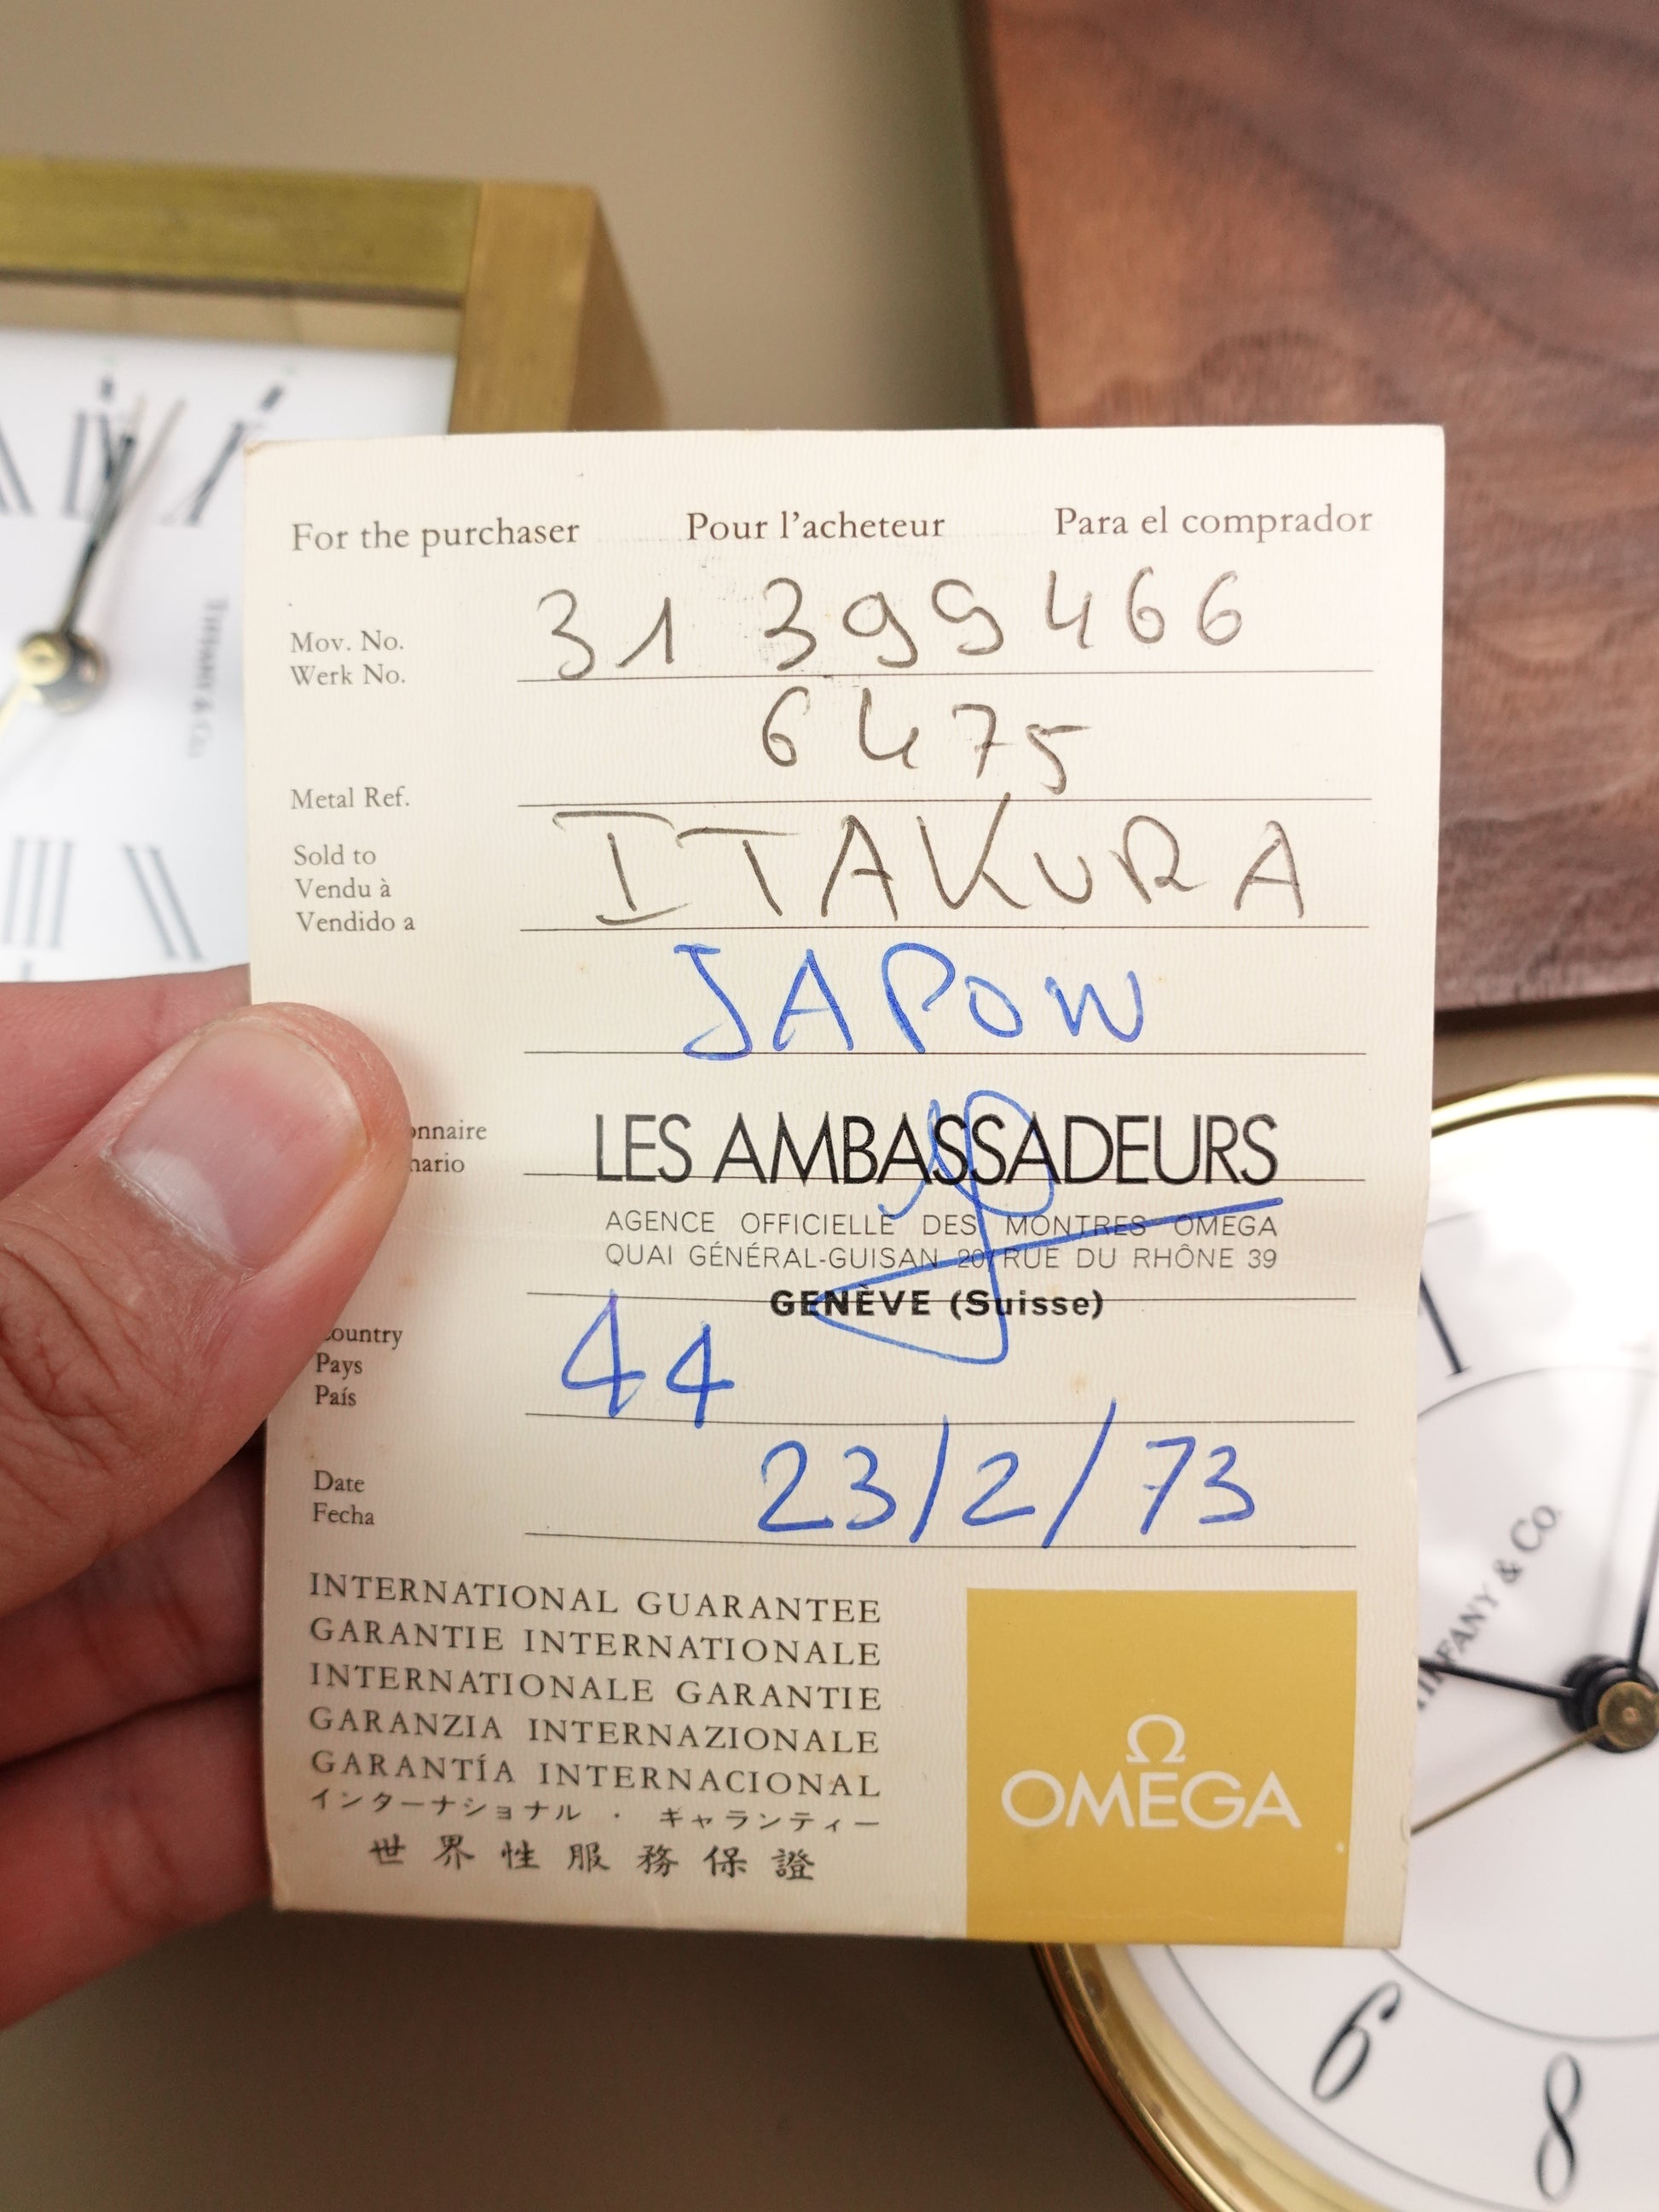 For the purchaser Pour l'acheteur Para el comprador
Mov. No. 31 399 466
Werk No.
6475
Metal Ref.
Sold to ITAKURA
Vendu à
Vendido a
JAPON
onnaire LES AMBASSADEURS
nario
AGENCE OFFICIELLE DES MONTRES OMEGA
QUAI GÉNÉRAL-GUISAN 20, RUE DU RHÔNE 39
GENÈVE (Suisse)
Country 44
Pays
País
Date 23/2/73
Fecha
INTERNATIONAL GUARANTEE
GARANTIE INTERNATIONALE
INTERNATIONALE GARANTIE
GARANZIA INTERNAZIONALE
GARANTÍA INTERNACIONAL
インターナショナル・ギャランティー
世界性服務保證
Ω
OMEGA
TIFFANY & Co.
TIFFANY & Co.
6
8